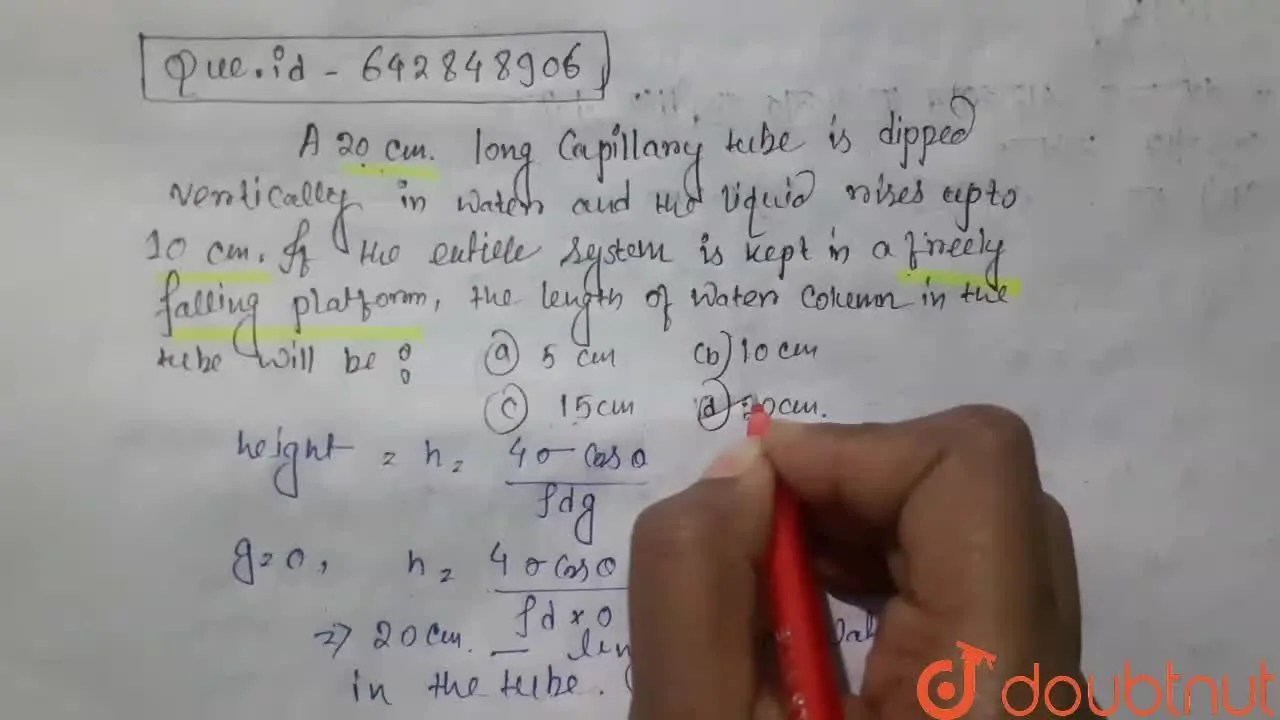 Que.id - 642848906
A 20 cm. long Capillary tube is dipped
vertically in water and the liquid rises upto
10 cm. If the entire system is kept in a freely
falling platform, the length of water column in the
tube will be :
(a) 5 cm (b) 10 cm
(c) 15 cm (d) 20 cm.
height = h = 4σ cos θ / ρdg
g=0, h = 4σ cos θ / ρd × 0
⇒ 20 cm. –
in the tube.
doubtnut